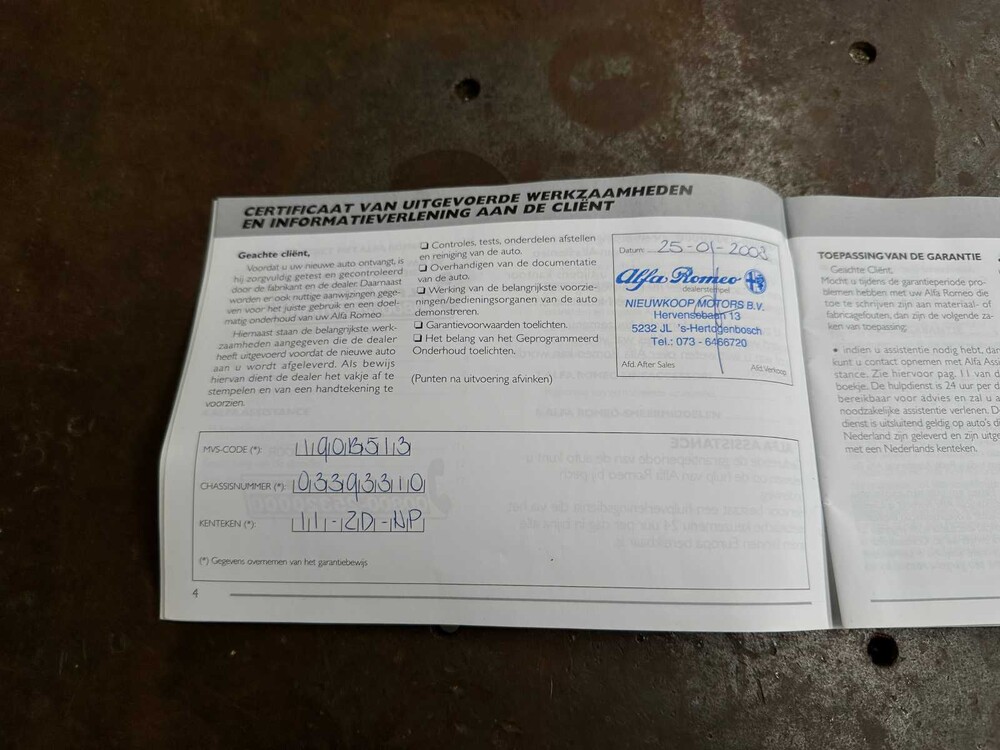 CERTIFICAAT VAN UITGEVOERDE WERKZAAMHEDEN
EN INFORMATIEVERLENING AAN DE CLIËNT
Geachte cliënt,
Voordat u uw nieuwe auto ontvangt, is
hij zorgvuldig getest en gecontroleerd
door de fabrikant en de dealer. Daarnaast
worden er ook nuttige aanwijzingen gege-
ven voor het juiste gebruik en een doel-
matig onderhoud van uw Alfa Romeo
Hiernaast staan de belangrijkste werk-
zaamheden aangegeven die de dealer
heeft uitgevoerd voordat de nieuwe auto
aan u wordt afgeleverd. Als bewijs
hiervan dient de dealer het vakje af te
stempelen en van een handtekening te
voorzien.
❏ Controles, tests, onderdelen afstellen
en reiniging van de auto.
❏ Overhandigen van de documentatie
van de auto.
❏ Werking van de belangrijkste voorzie-
ningen/bedieningsorganen van de auto
demonstreren.
❏ Garantievoorwaarden toelichten.
❏ Het belang van het Geprogrammeerd
Onderhoud toelichten.
(Punten na uitvoering afvinken)
Datum: 25-01-2003
Alfa Romeo
dealerstempel
NIEUWKOOP MOTORS B.V.
Hervensebaan 13
5232 JL 's-Hertogenbosch
Tel.: 073 - 6466720
Afd. After Sales
Afd. Verkoop
MVS-CODE (*): 190B513
CHASSISNUMMER (*): 03393310
KENTEKEN (*): 11-ZD-NP
(*) Gegevens overnemen van het garantiebewijs
4
TOEPASSING VAN DE GARANTIE
Geachte Cliënt,
Mocht u tijdens de garantieperiode pro-
blemen hebben met uw Alfa Romeo die
toe te schrijven zijn aan materiaal- of
fabricagefouten, dan zijn de volgende za-
ken van toepassing:
• indien u assistentie nodig hebt, dan
kunt u contact opnemen met Alfa Assi
stance. Zie hiervoor pag. 11 van d
boekje. De hulpdienst is 24 uur per d
bereikbaar voor advies en zal u a
noodzakelijke assistentie verlenen. D
dienst is uitsluitend geldig op auto's di
Nederland zijn geleverd en zijn uitge
met een Nederlands kenteken.